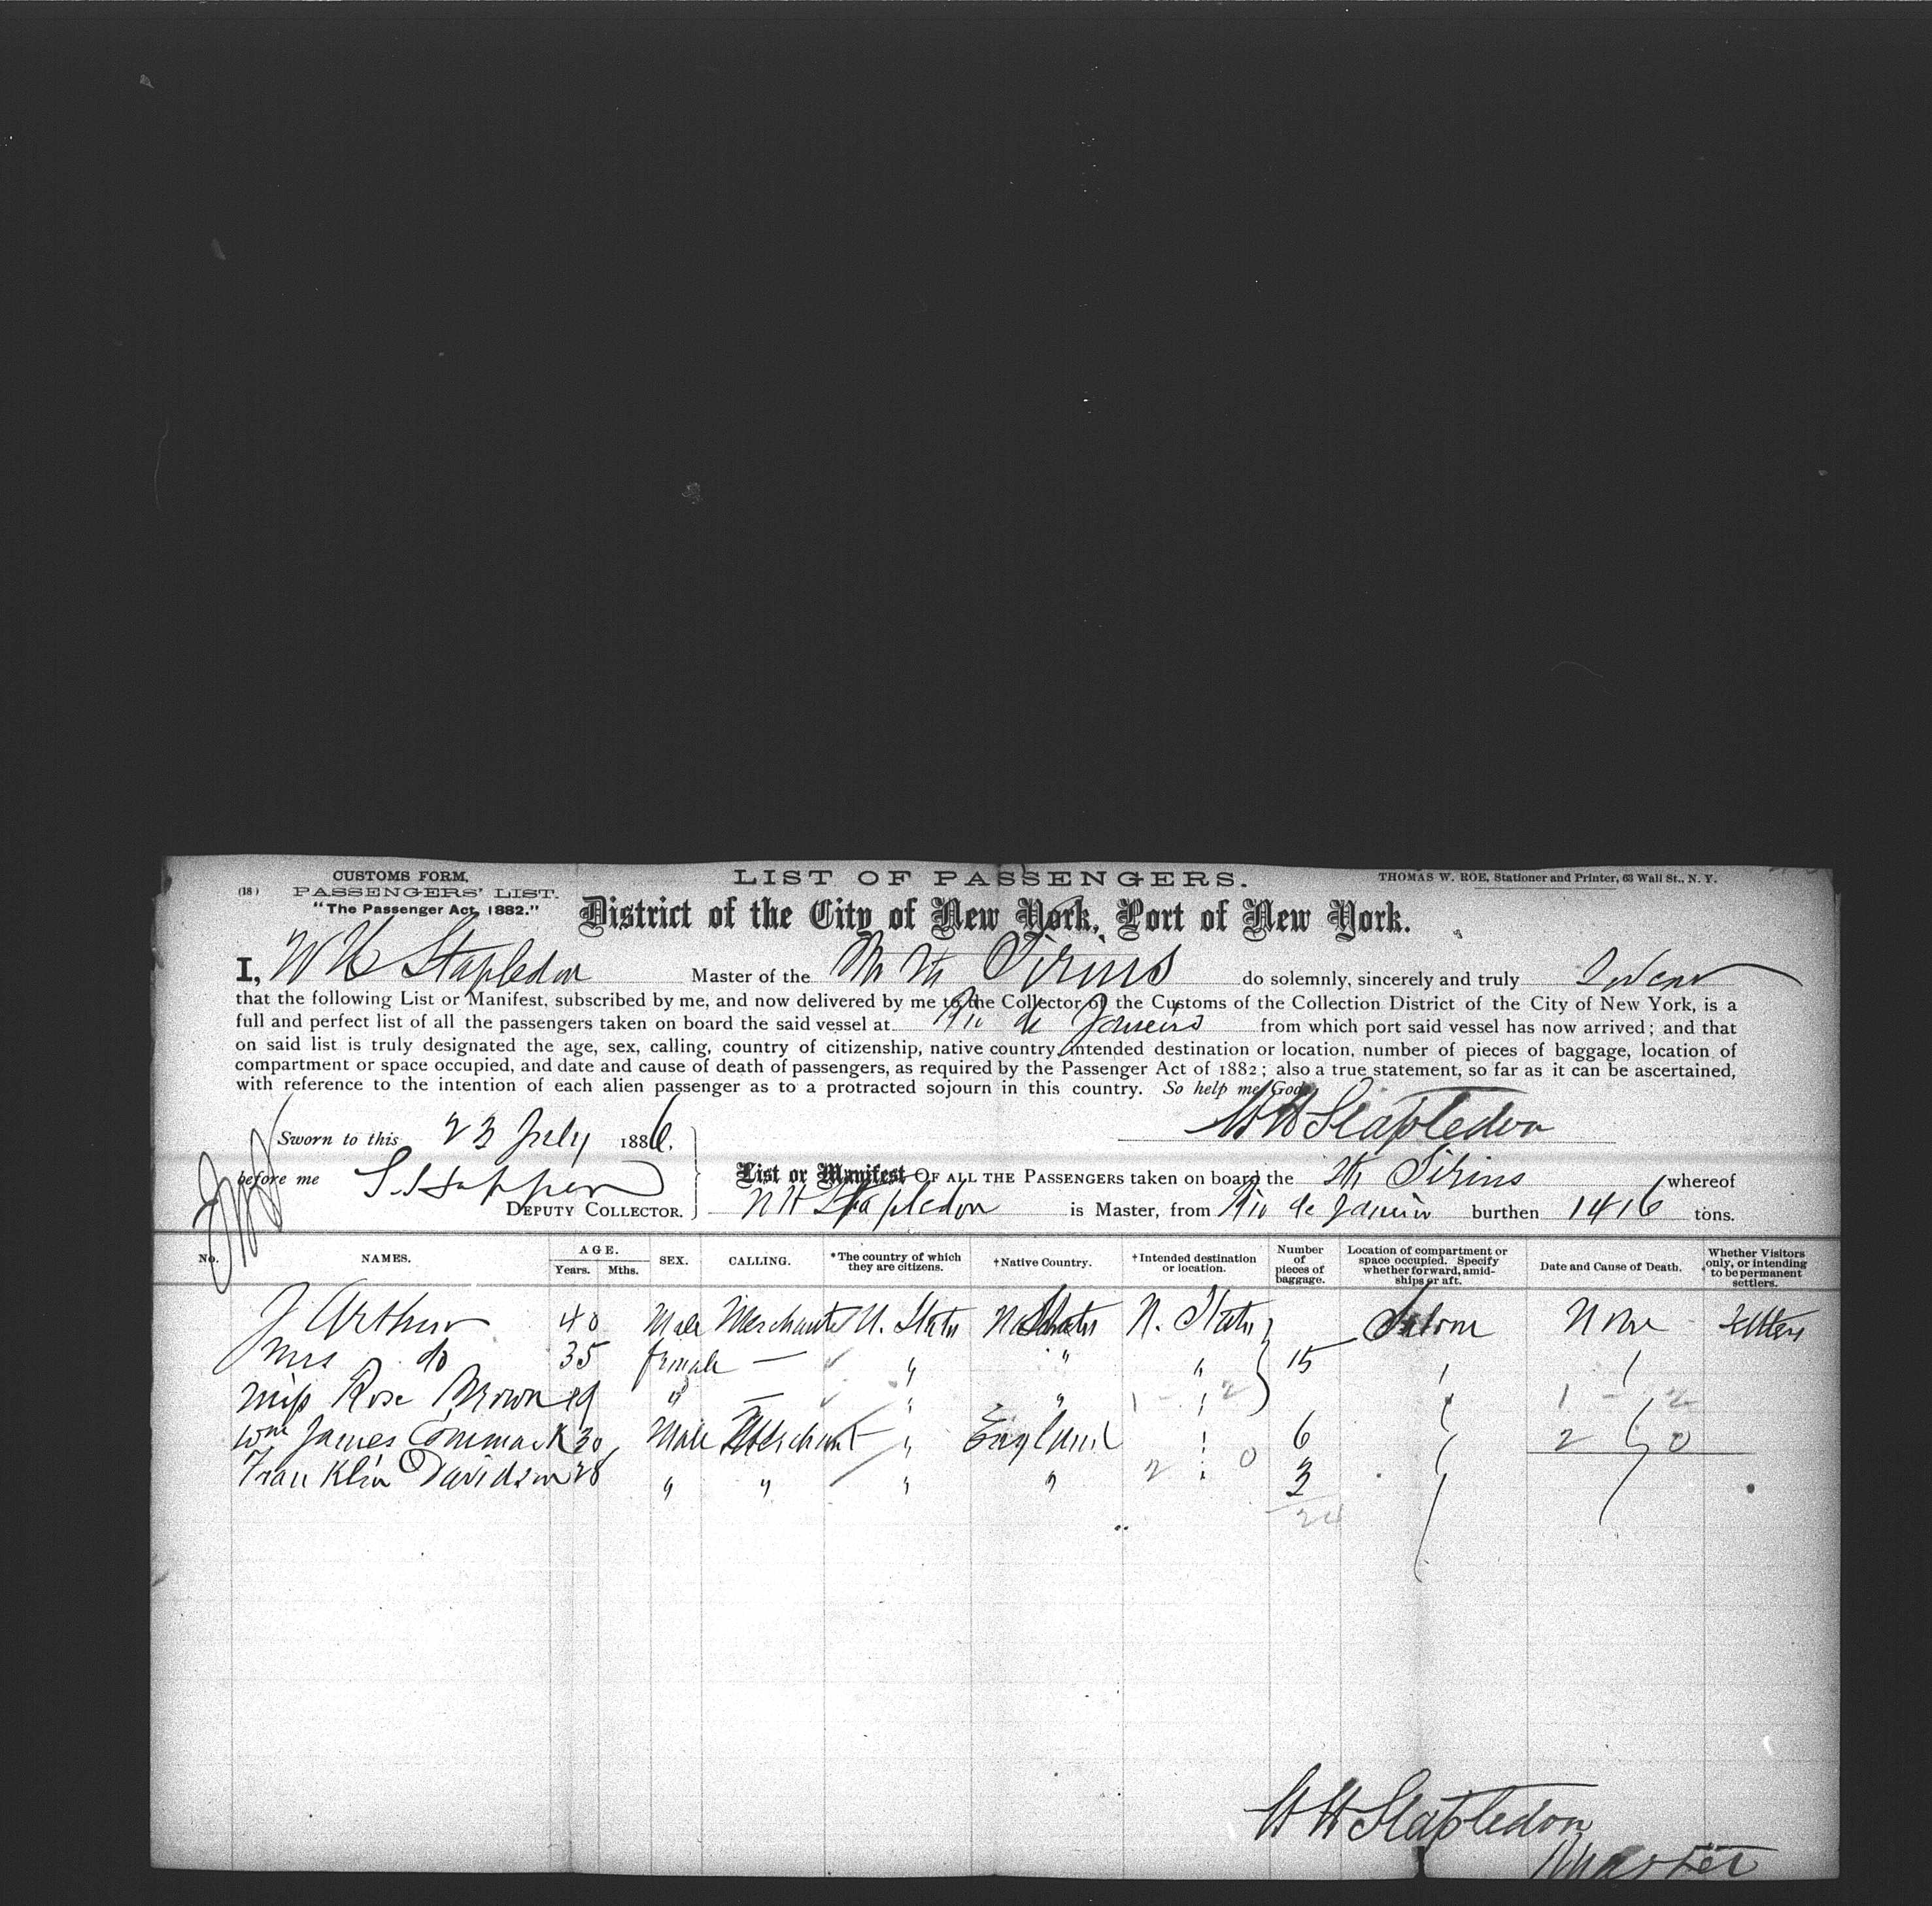 CUSTOMS FORM.
(18) PASSENGERS' LIST.
"The Passenger Act, 1882."
LIST OF PASSENGERS.
THOMAS W. ROE, Stationer and Printer, 63 Wall St., N. Y.
District of the City of New York, Port of New York.
I, W H Stapledon Master of the Sirius do solemnly, sincerely and truly Swear
that the following List or Manifest, subscribed by me, and now delivered by me to the Collector of the Customs of the Collection District of the City of New York, is a
full and perfect list of all the passengers taken on board the said vessel at Rio de Janeiro from which port said vessel has now arrived; and that
on said list is truly designated the age, sex, calling, country of citizenship, native country, intended destination or location, number of pieces of baggage, location of
compartment or space occupied, and date and cause of death of passengers, as required by the Passenger Act of 1882; also a true statement, so far as it can be ascertained,
with reference to the intention of each alien passenger as to a protracted sojourn in this country. So help me God
W H Stapledon
Sworn to this 23 July 1886.
before me
DEPUTY COLLECTOR.
List or Manifest OF ALL THE PASSENGERS taken on board the Str Sirius whereof
W H Stapledon is Master, from Rio de Janeiro burthen 1416 tons.
No. NAMES. AGE. Years. Mths. SEX. CALLING. *The country of which they are citizens. †Native Country. †Intended destination or location. Number of pieces of baggage. Location of compartment or space occupied. Specify whether forward, amidships or aft. Date and Cause of Death. Whether Visitors only, or intending to be permanent settlers.
J Arthur 40 Male Merchant U. States U States U. States Saloon None Settlers
Mrs do 35 female — " " " 15
Miss Rose Brown 19 " — " " "
Wm James Commack 30 Male Merchant " England 6
Franklin Davidson 28 " " " " 3
24
W H Stapledon
Master